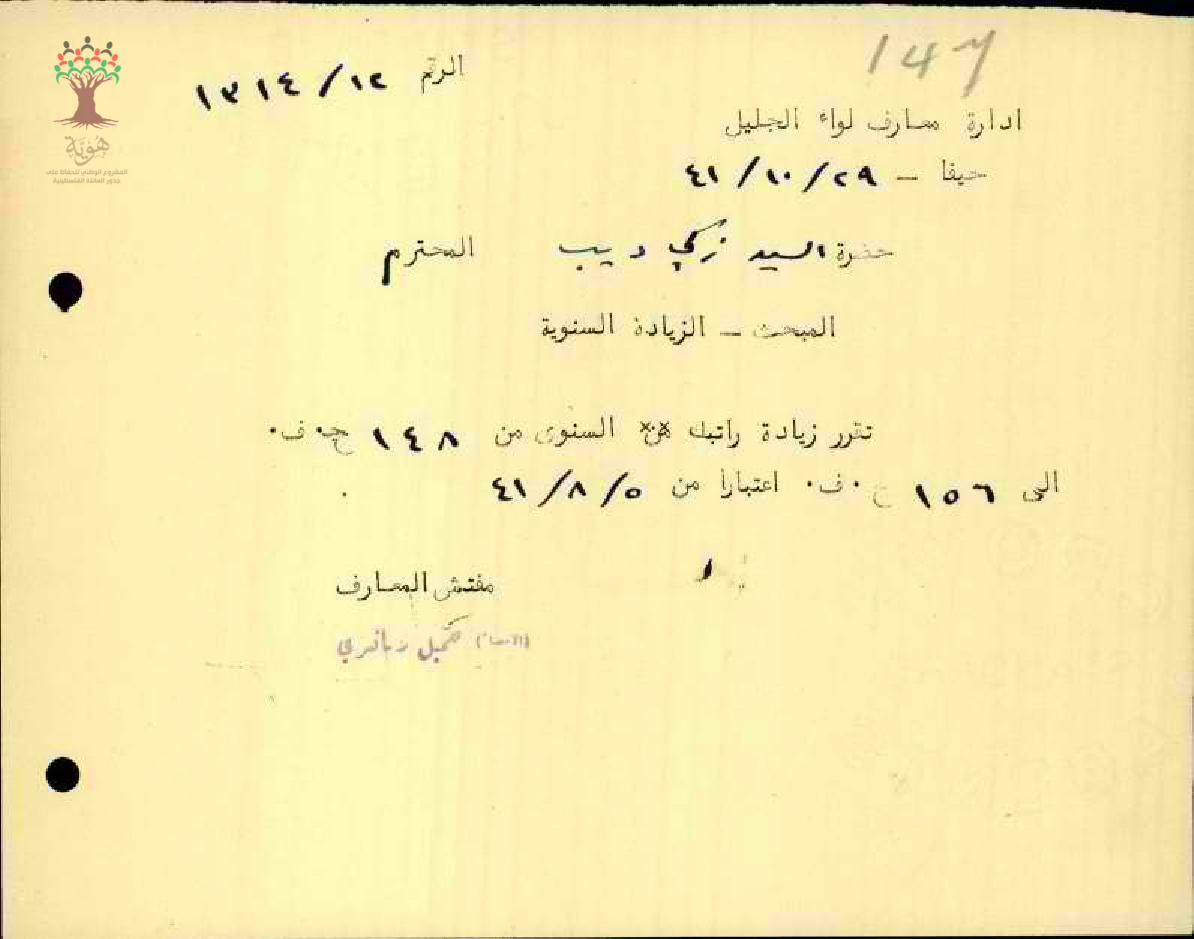 147
الرقم ١٣١٤/١٢
هُوِيَّة
المشروع الوطني للحفاظ على
جذور العائلة الفلسطينية
ادارة معارف لواء الجليل
حيفا – ٤١/١٠/٢٩
حضرة السيد زكي ديب المحترم
المبحث – الزيادة السنوية
تقرر زيادة راتبك السنوى من ١٤٨ ج.ف.
الى ١٥٦ ج.ف. اعتبارا من ٤١/٨/٥
مفتش المعارف
(الامضاء)